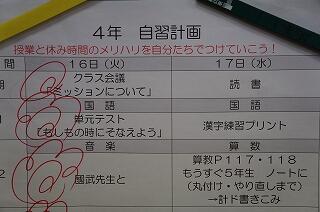 4年 自習計画
授業と休み時間のメリハリを自分たちでつけていこう!
間 16日(火) 17日(水)
期 クラス会議 読書
「ミッションについて」
国語 国語
単元テスト 漢字練習プリント
「もしもの時にそなえよう」
音楽 算数
2 國武先生と 算教P117・118
もうすぐ5年生 ノートに
(丸付け・やり直しまで)
→計ド書きこみ